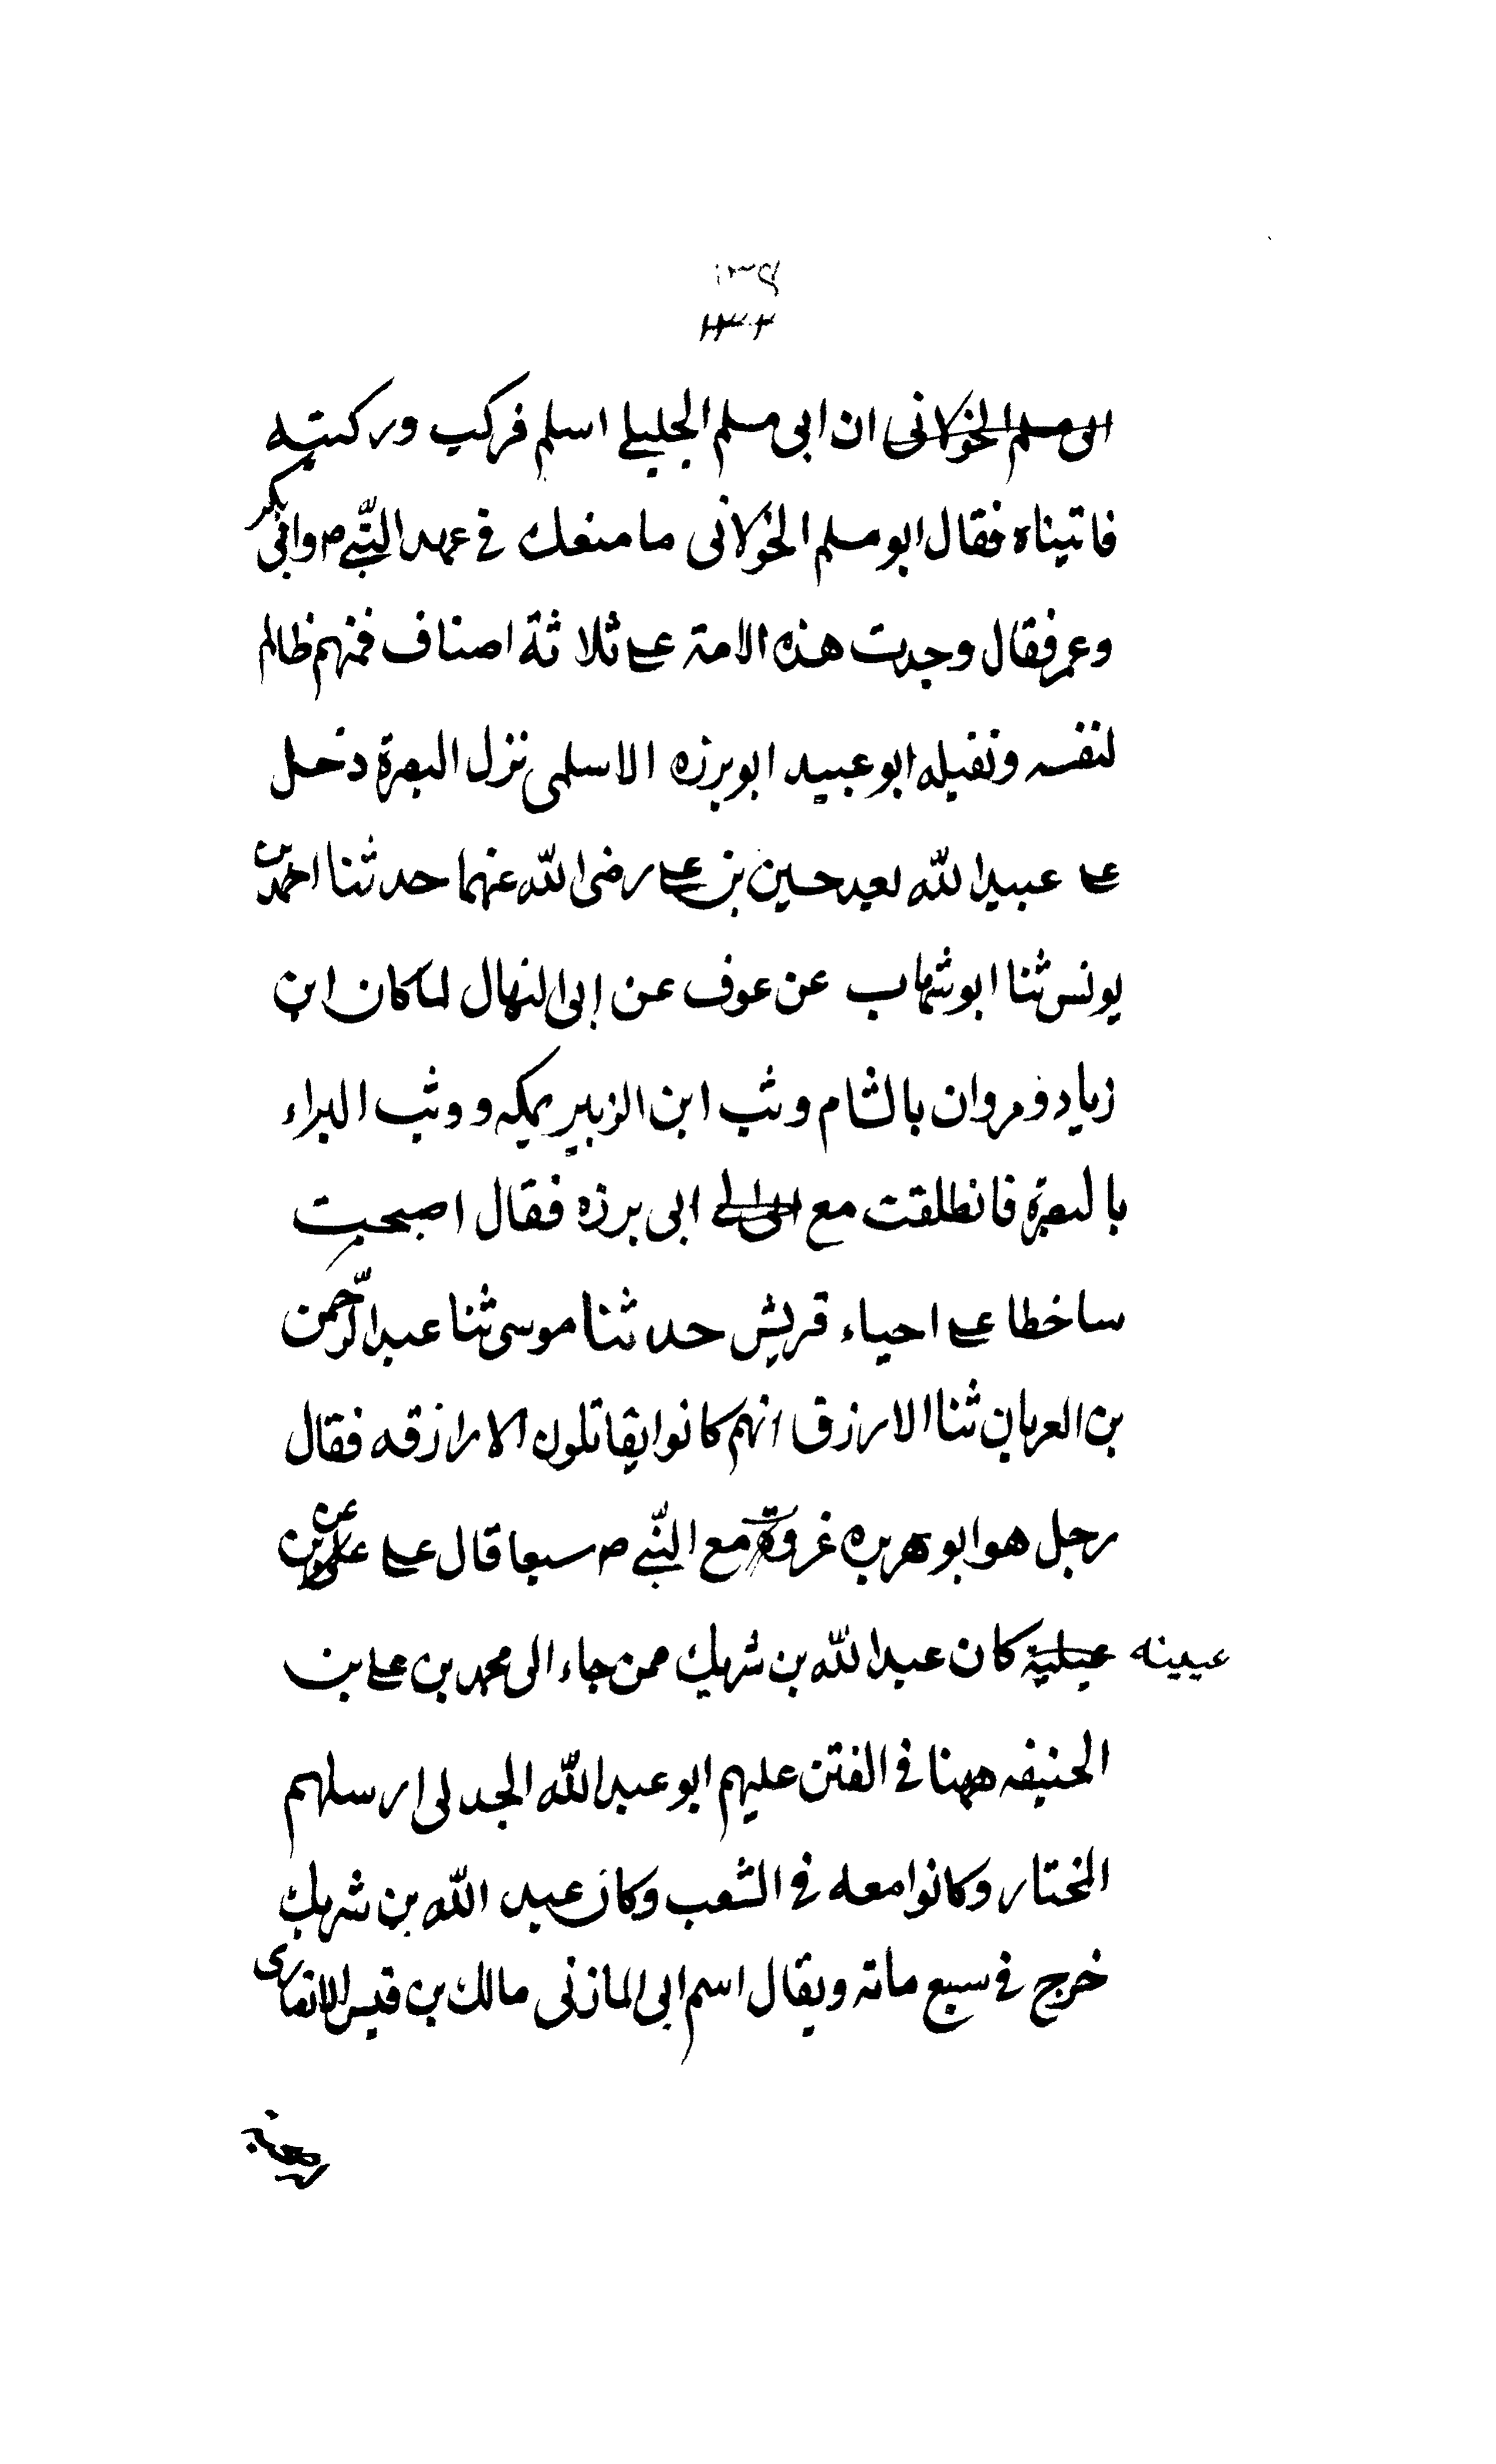 ١٣٩
١٣٢
ابى مسلم الخولانى ان ابى مسلم الجليلے اسلم فركب وركبته
فاتيناه فقال ابو مسلم الخولانى ما منعك فے عهد النّبے ص وابى بكر
وعمر فقال وجدت هذه الامة علے ثلاثة اصناف فمنهم ظالم
لنفسه ونفيله ابو عبيد ابو برزه الاسلمى نزل البصرة دخل
علے عبيد الله بعيد حسين بن علے رضى الله عنهما حدثنا احمد بن
يونس ثنا ابو شهاب عن عوف عن ابى المنهال لما كان ابن
زياد ومروان بالشام وثب ابن الزبير بمكه ووثب البراء
بالبصرة فانطلقت مع ابى برزه فقال اصبحت
ساخطا علے احياء قريش حدثنا موسى ثنا عبد الرّحمن
بن العريان ثنا الازرق انهم كانوا يقاتلون الازارقه فقال
رجل هو ابو هريره غزوة مع النّبے ص سبعا قال علے عن بن
عيينه كان عبد الله بن شريك ممن جاء الى محمد بن علے بن
الحنيفه ههنا فى الفتن عليهم ابو عبد الله الجدلى ارسلهم
المختار وكانوا معه فے الشعب وكان عبد الله بن شريك
خرج فے سبع مائة ويقال اسم ابى المازنى مالك بن قيس الانصارى